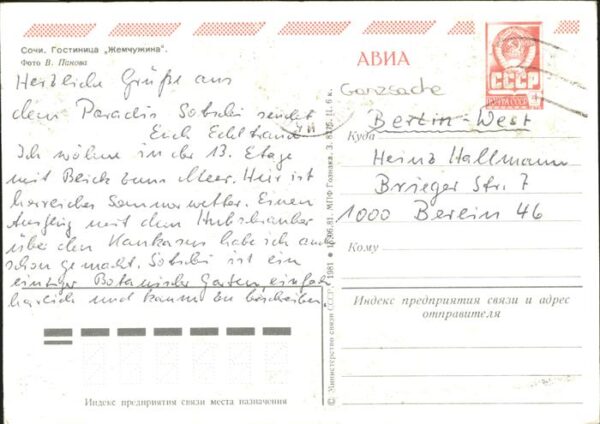 Сочи. Гостиница „Жемчужина".
Фото В. Панова
АВИА
ПОЧТА СССР
Ganzsache
Herzliche Grüße aus
dem Paradis Sotschi sendet
Euch
Ich wohne in der 13. Etage
mit Blick zum Meer. Hier ist
herrliches Sommerwetter. Einen
Ausflug mit dem Hubschrauber
über den Kaukasus habe ich auch
schon gemacht. Sotschi ist ein
einziger Botanischer Garten, einfach
herrlich und kaum zu beschreiben.
Berlin-West
Куда
Heinz Hallmann
Brieger Str. 7
1000 Berlin 46
Кому
Индекс предприятия связи и адрес
отправителя
Индекс предприятия связи места назначения
© Министерство связи СССР. 1981
МПФ Гознака. З. 6 к.